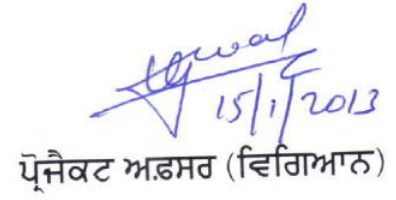 15/1/2013
ਪ੍ਰੋਜੈਕਟ ਅਫ਼ਸਰ (ਵਿਗਿਆਨ)